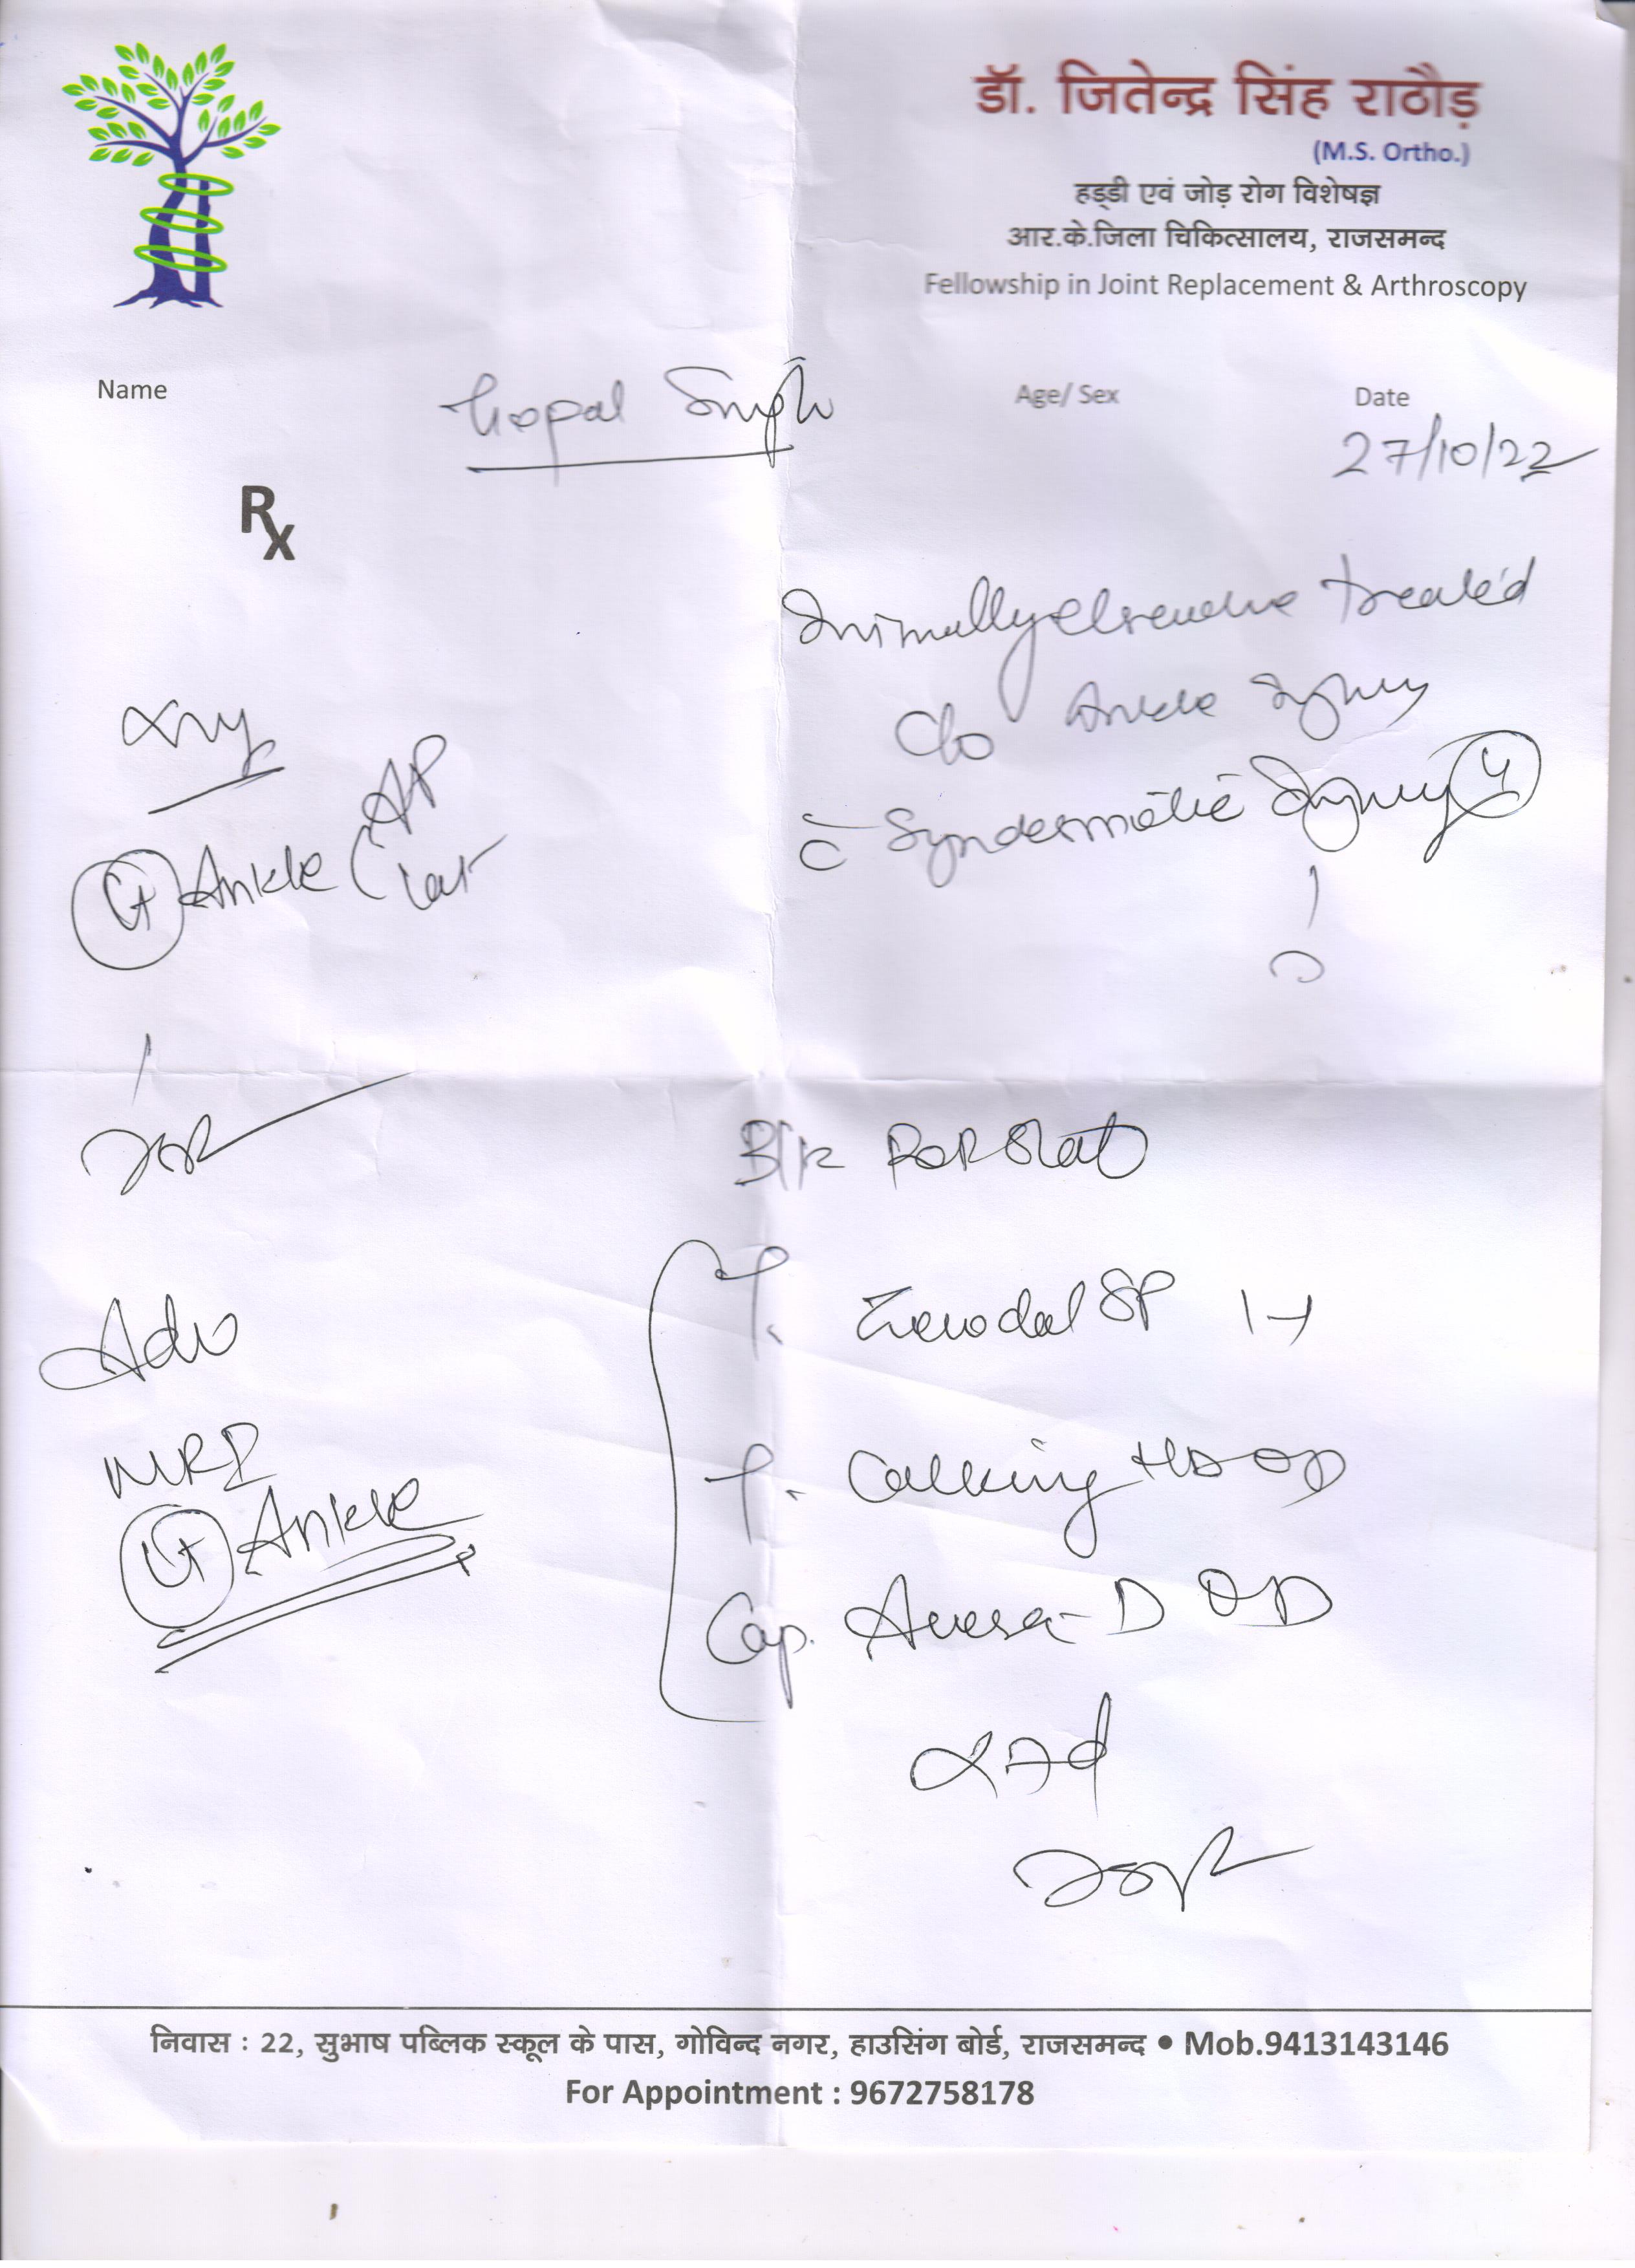 डॉ. जितेन्द्र सिंह राठौड़
(M.S. Ortho.)
हड्डी एवं जोड़ रोग विशेषज्ञ
आर.के.जिला चिकित्सालय, राजसमन्द
Fellowship in Joint Replacement & Arthroscopy
Name Gopal Singh Age/ Sex Date
27/10/22
Rx
treated
c/o Ankle Injury
c̄ Syndesmotic Injury
Xray
Ankle AP
Lat
POP Slab
Adv
T. Zerodol SP 1-1
MRI
Ankle
T. HD OD
Cap. D OD
निवास : 22, सुभाष पब्लिक स्कूल के पास, गोविन्द नगर, हाउसिंग बोर्ड, राजसमन्द • Mob.9413143146
For Appointment : 9672758178